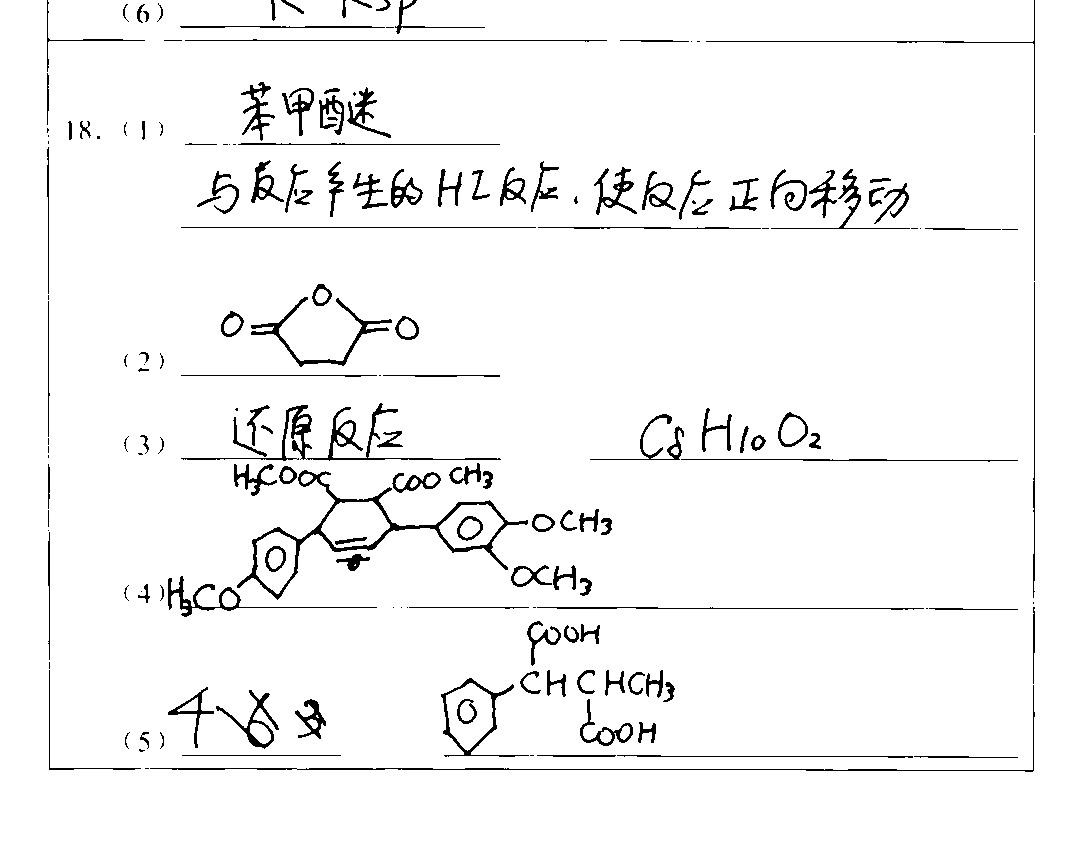 (6) K Ksp
18. (1) 苯甲醚
与反应产生的HI反应.使反应正向移动
O
O O
(2)
(3) 还原反应 C8H10O2
H3COOC COOCH3
OCH3
OCH3
(4) H3CO
COOH
CHCHCH3
COOH
(5) 4